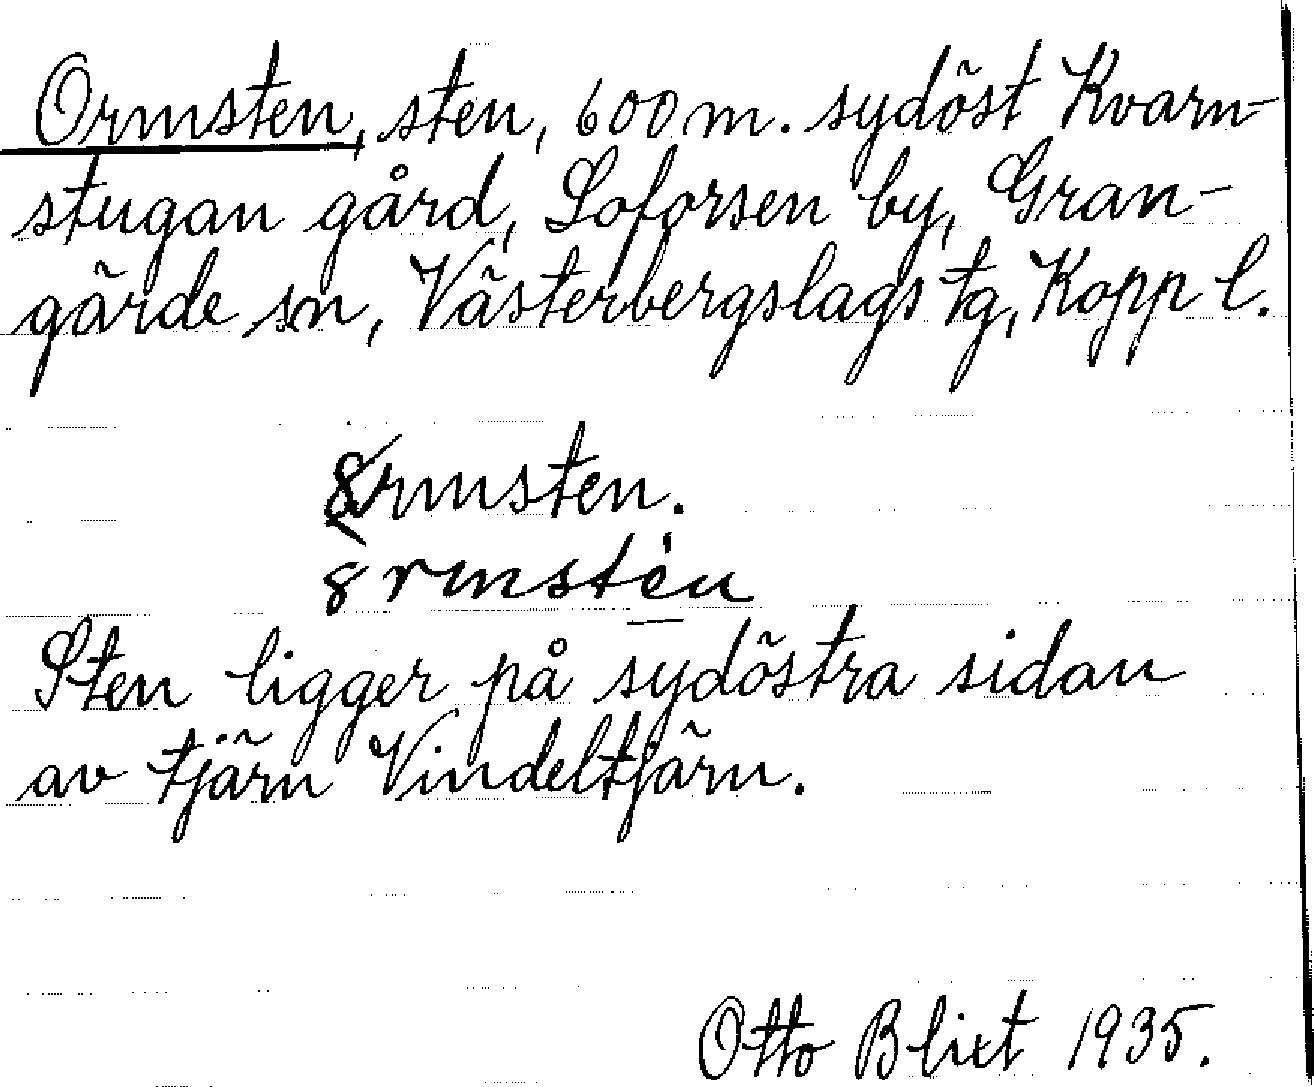 Ormsten, sten, 600 m. sydöst Kvarn-
stugan gård, Loforsen by, Gran-
gärde sn, Västerbergslags tg, Kopp l.
ȣrmsten.
ȣrmstèn
Sten ligger på sydöstra sidan
av tjärn Vindeltjärn.
Otto Blixt 1935.